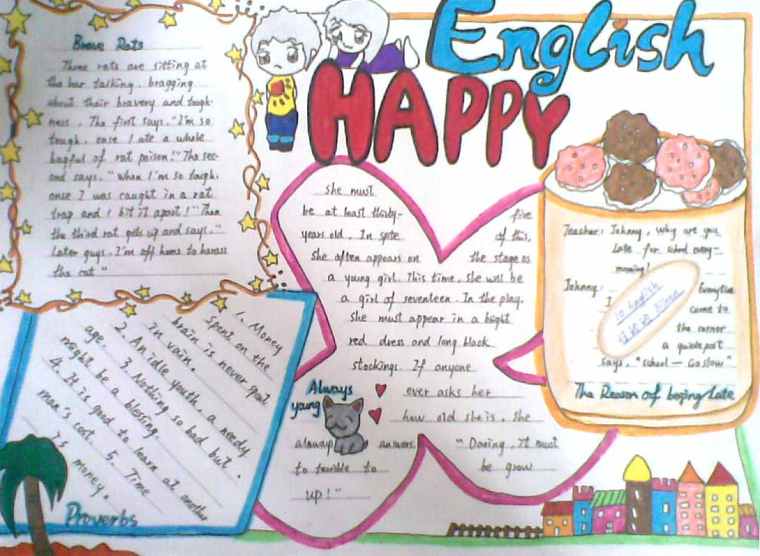 English
HAPPY
Brave Rats
Three rats are sitting at
the bar talking, bragging
about their bravery and tough-
ness. The first says, "I'm so
tough, once I ate a whole
bagful of rat poison!" The sec-
ond says, "When I'm so tough,
once I was caught in a rat
trap and I bit it apart!" Then
the third rat gets up and says, "
Later guys, I'm off home to harass
the cat"
1. Money
spent on the
brain is never spent
in vain.
2. An idle youth, a needy
age. 3. Nothing so bad but
might be a blessing.
4. It is good to learn at another
man's cost. 5. Time
is money.
Proverbs
she must
be at least thirty-five
years old. In spite of this,
she often appears on the stage as
a young girl. This time, she will be
a girl of seventeen. In the play,
she must appear in a bright
red dress and long black
stockings. If anyone
ever asks her
how old she is, she
always answers, "Daring, It must
to terrible to be grow
up!"
Always
young
Teacher: Johnny, Why are you
late for school every-
morning?
Johnny: Everytime
I come to
the corner
a guidepost
says, "school — Go slow"
The Reason of being Late